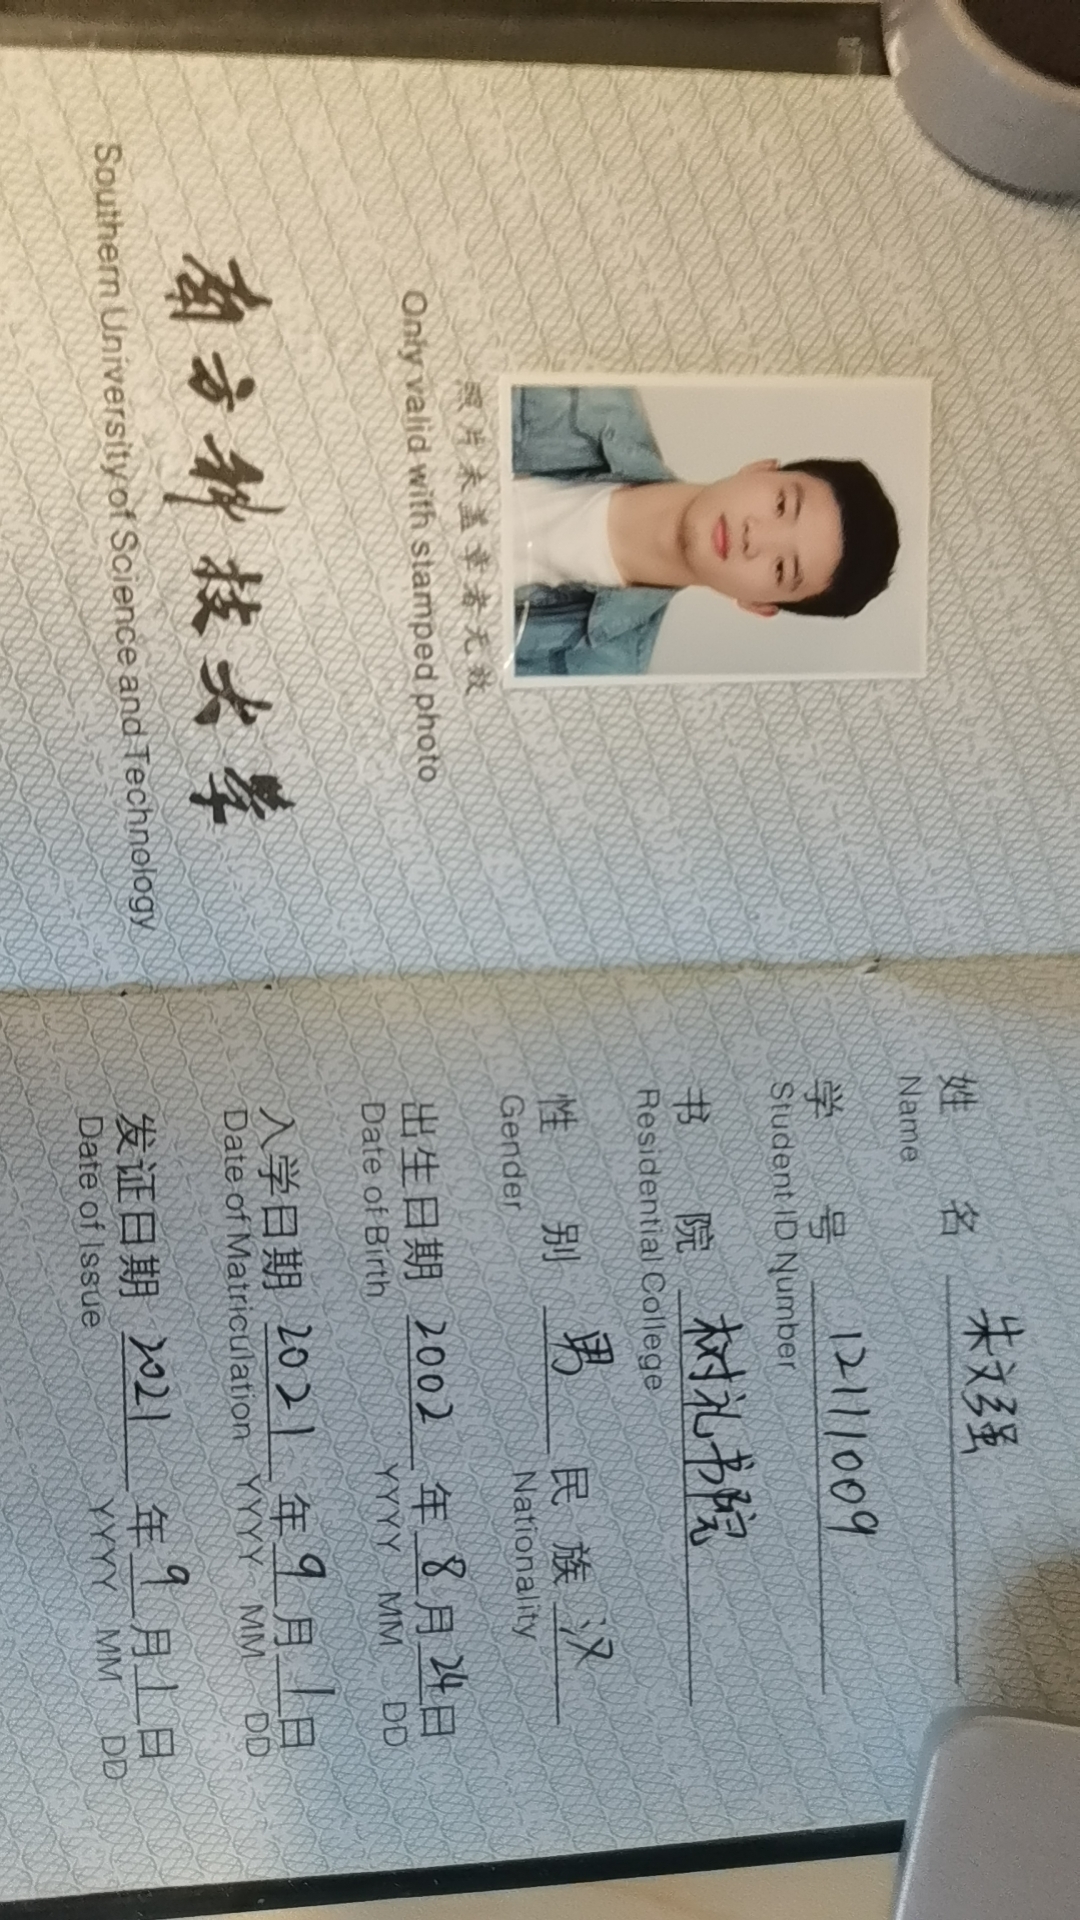 照片未盖章者无效
Only valid with stamped photo
南方科技大学
Southern University of Science and Technology
姓名 朱文强
Name
学号 12111009
Student ID Number
书院 树礼书院
Residential College
性别 男 民族 汉
Gender Nationality
出生日期 2002 年 8 月 24 日
Date of Birth YYYY MM DD
入学日期 2021 年 9 月 1 日
Date of Matriculation YYYY MM DD
发证日期 2021 年 9 月 1 日
Date of Issue YYYY MM DD